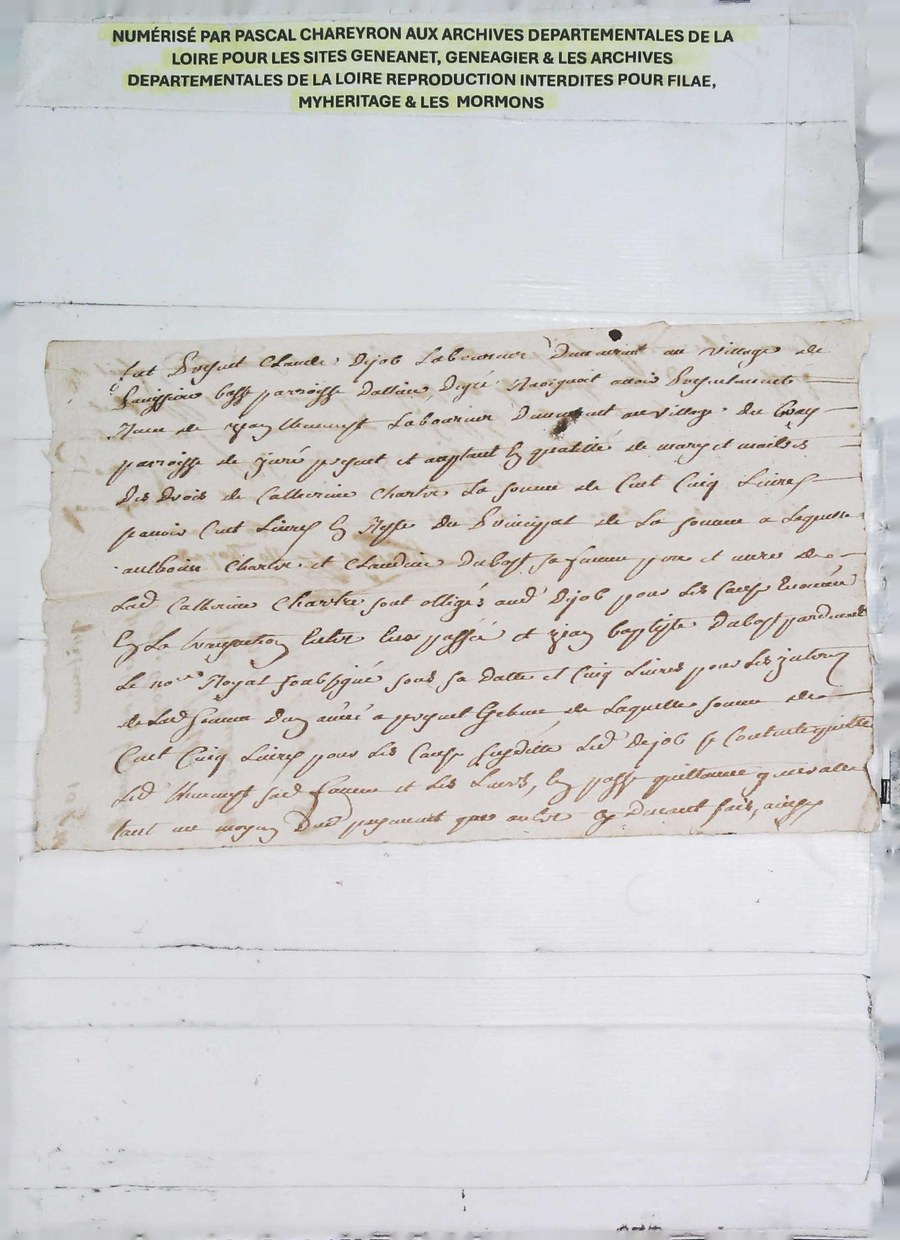 NUMÉRISÉ PAR PASCAL CHAREYRON AUX ARCHIVES DEPARTEMENTALES DE LA
LOIRE POUR LES SITES GENEANET, GENEAGIER & LES ARCHIVES
DEPARTEMENTALES DE LA LOIRE REPRODUCTION INTERDITES POUR FILAE,
MYHERITAGE & LES MORMONS
fut Present Claude Dejob Laboureur Demeurant au village de
basse parroisse Dallieu, De gré Recognoit avoir Presentement
Receu de Laboureur Demeurant au village du
parroisse de juré present et acceptant En qualitté de mary et maitre
des droits de Catherine Chartre La somme de Cent Cinq Livres
scavoir Cent Livres En Reste du Principal de La somme a Laquelle
anthoine Chartre et Claudine Dubost sa femme pere et mere de
Lad Catherine Chartre sont obligés aud Dejob pour les Causes Enoncées
En La entre Eux passée et jean baptiste Dubost pardevant
Le nore Royal soubsigné sous sa datte et Cinq Livres pour les interets
de Lad somme Dun année a present de Laquelle somme de
Cent Cinq Livres pour les Causes susdittes Led Dejob se Contente quitte
Led sad femme et les Leurs, En passe quittance generalle
tant au moyen Dud payement que autre Cy Devant fait, ainsy